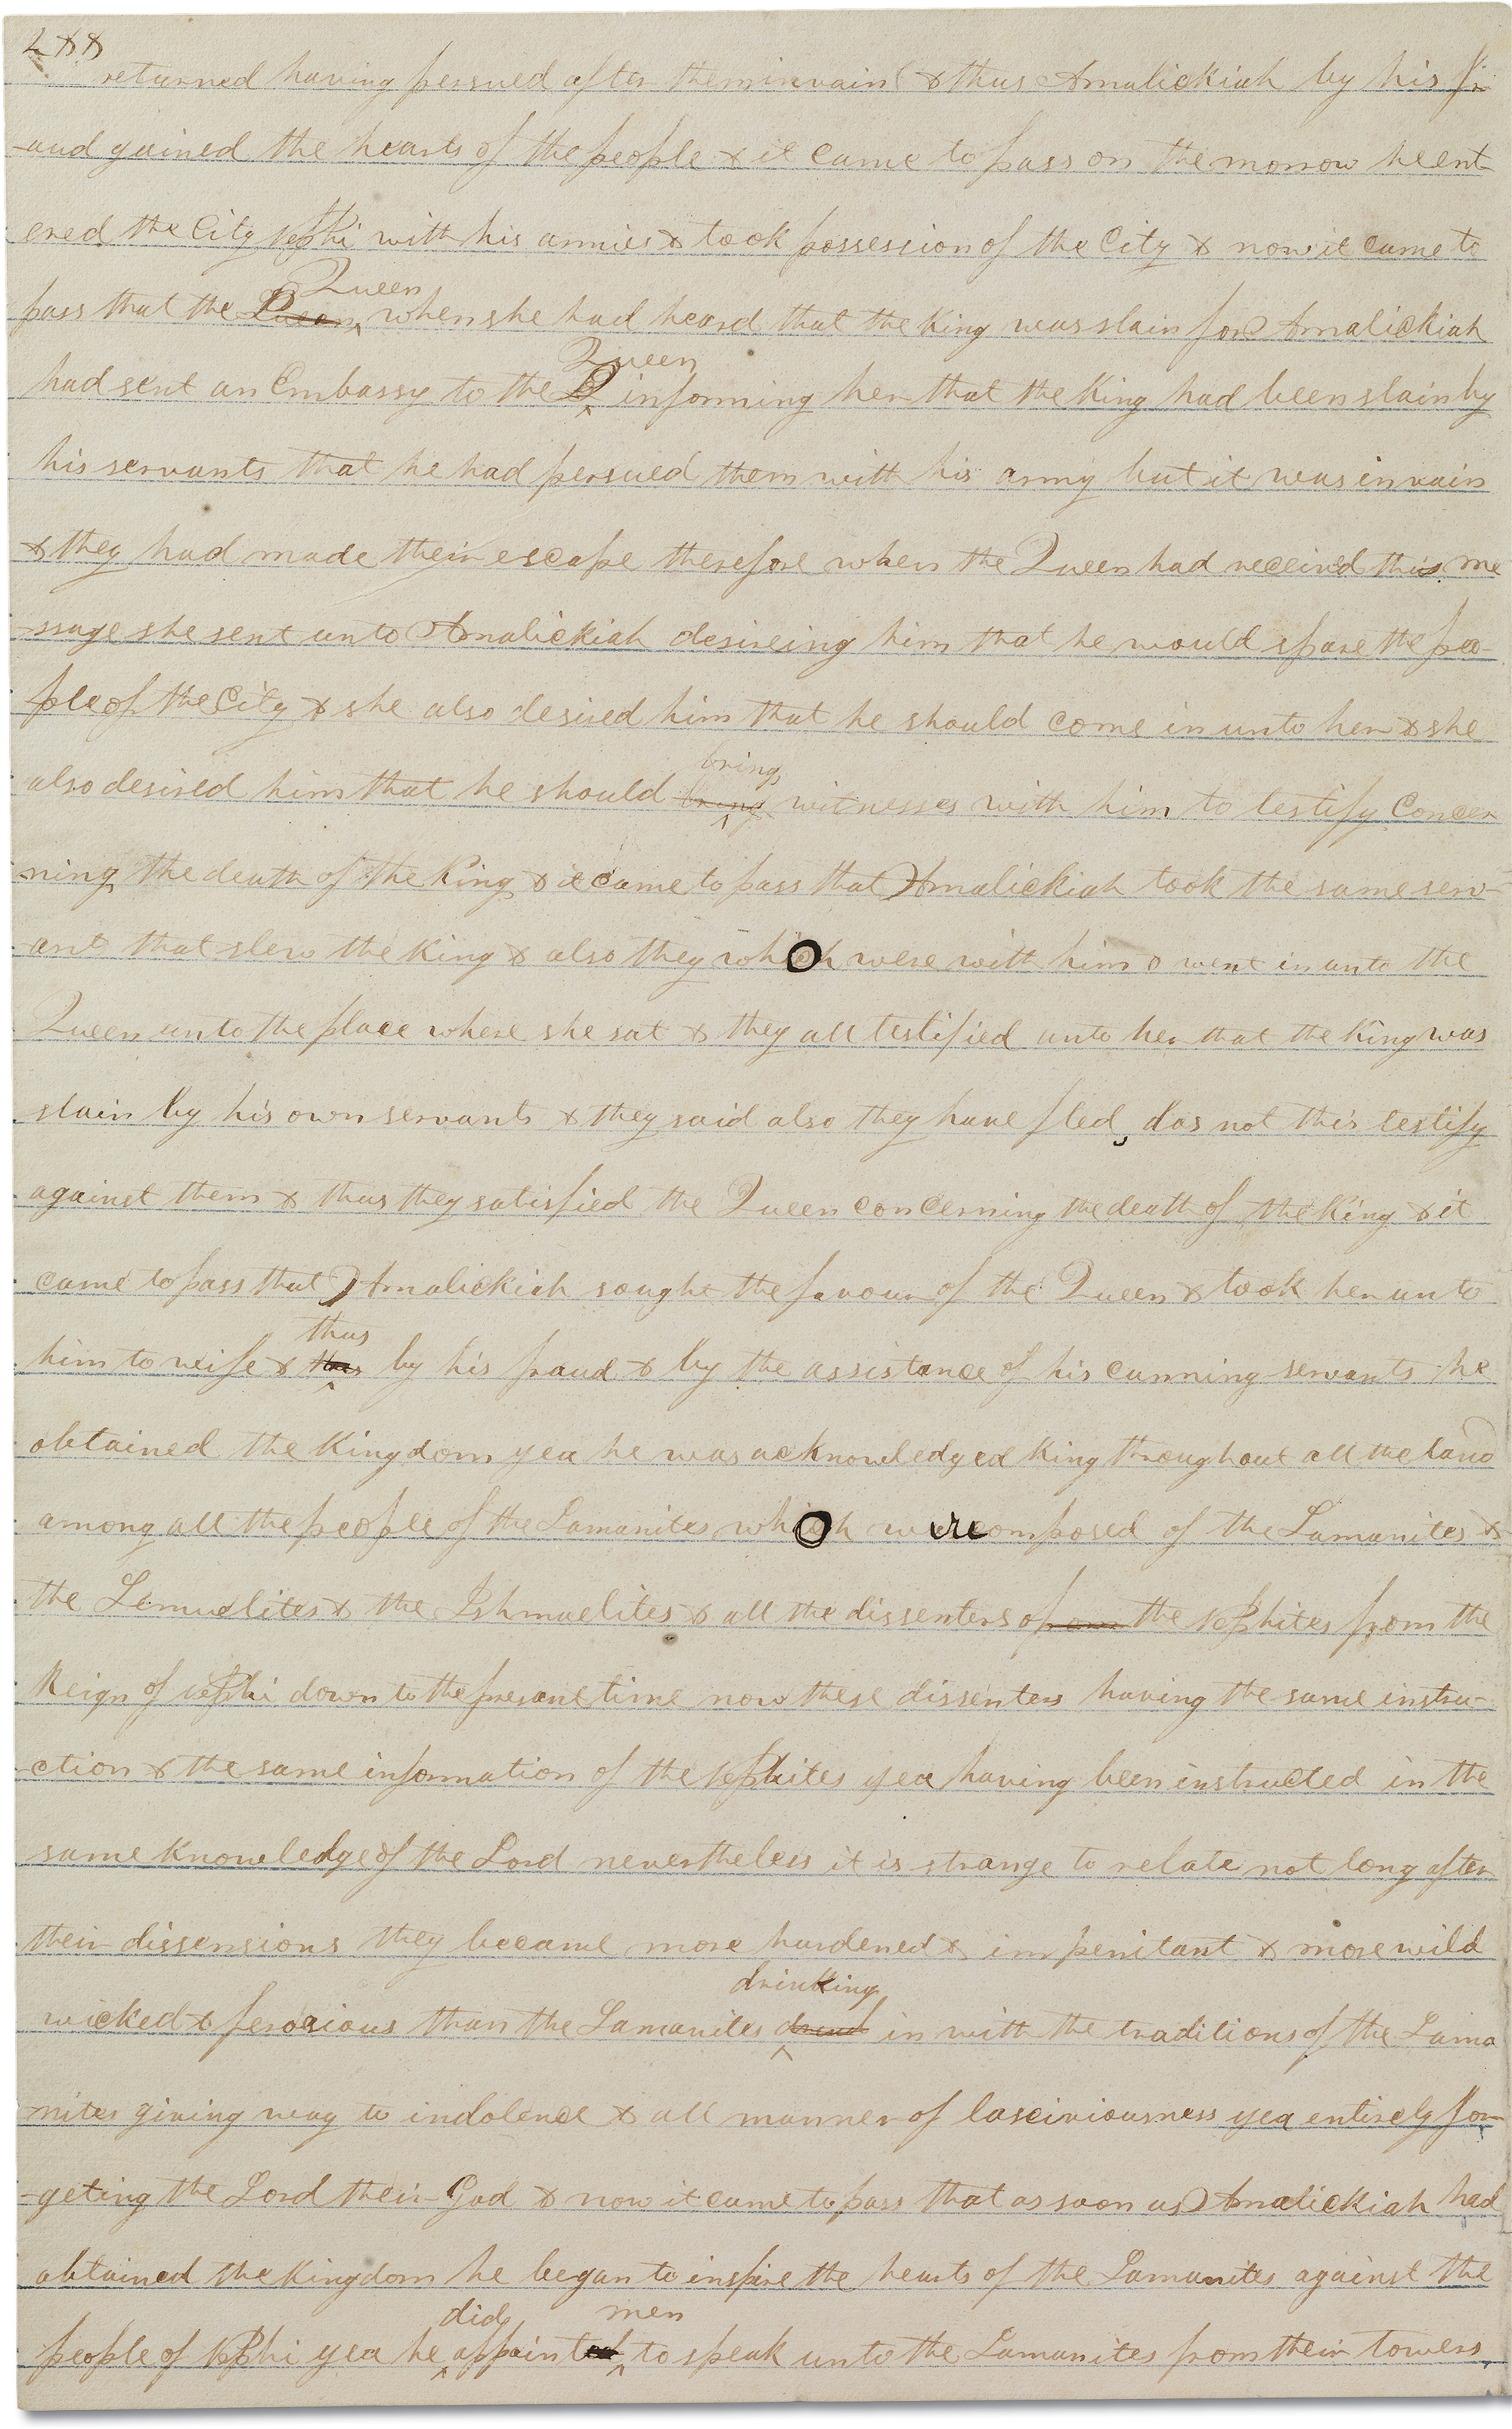 288
returned having persued after them in vain & thus Amalickiah by his fr
-aud gained the hearts of the people & it came to pass on the morrow he ent
ered the City Nephi with his armies & took possession of the City & now it came to
Queen
pass that the Queen when she had heard that the King was slain for Amalickiah
Queen
had sent an Embassy to the Q informing her that the King had been slain by
his servants that he had persued them with his army but it was in vain
& they had made their escape therefore when the Queen had receivd this me
-ssage she sent unto Amalickiah desireing him that he would spare the peo-
ple of the City & she also desired him that he should come in unto her & she
bring
also desired him that he should bring witnesses with him to testify Concer
-ning the death of the King & it came to pass that Amalickiah took the same serv-
-ant that slew the King & also they which were with him & went in unto the
Queen unto the place where she sat & they all testified unto her that the King was
slain by his own servants & they said also they have fled, das not this testify
against them & thus they satisfied the Queen concerning the death of the King & it
came to pass that Amalickiah sought the favour of the Queen & took her unto
thus
him to wife & thus by his fraud & by the assistance of his cunning servants he
obtained the Kingdom yea he was acknowledged King throughout all the land
among all the people of the Lamanites which were composed of the Lamanites &
the Lemuelites & the Ishmaelites & all the dissenters of the Nephites from the
Reign of Nephi down to the presant time now these dissenters having the same instru-
-ction & the same information of the Nephites yea having been instructed in the
same knowledge of the Lord nevertheless it is strange to relate not long after
their dissensions they became more hardened & impenitant & more wild
drinking
wicked & ferocious than the Lamanites in with the traditions of the Lama
nites giving way to indolence & all manner of lasciviousness yea entirely for
-geting the Lord their God & now it came to pass that as soon as Amalickiah had
obtained the Kingdom he began to inspire the hearts of the Lamanites against the
did men
people of Nephi yea he appointed to speak unto the Lamanites from their towers